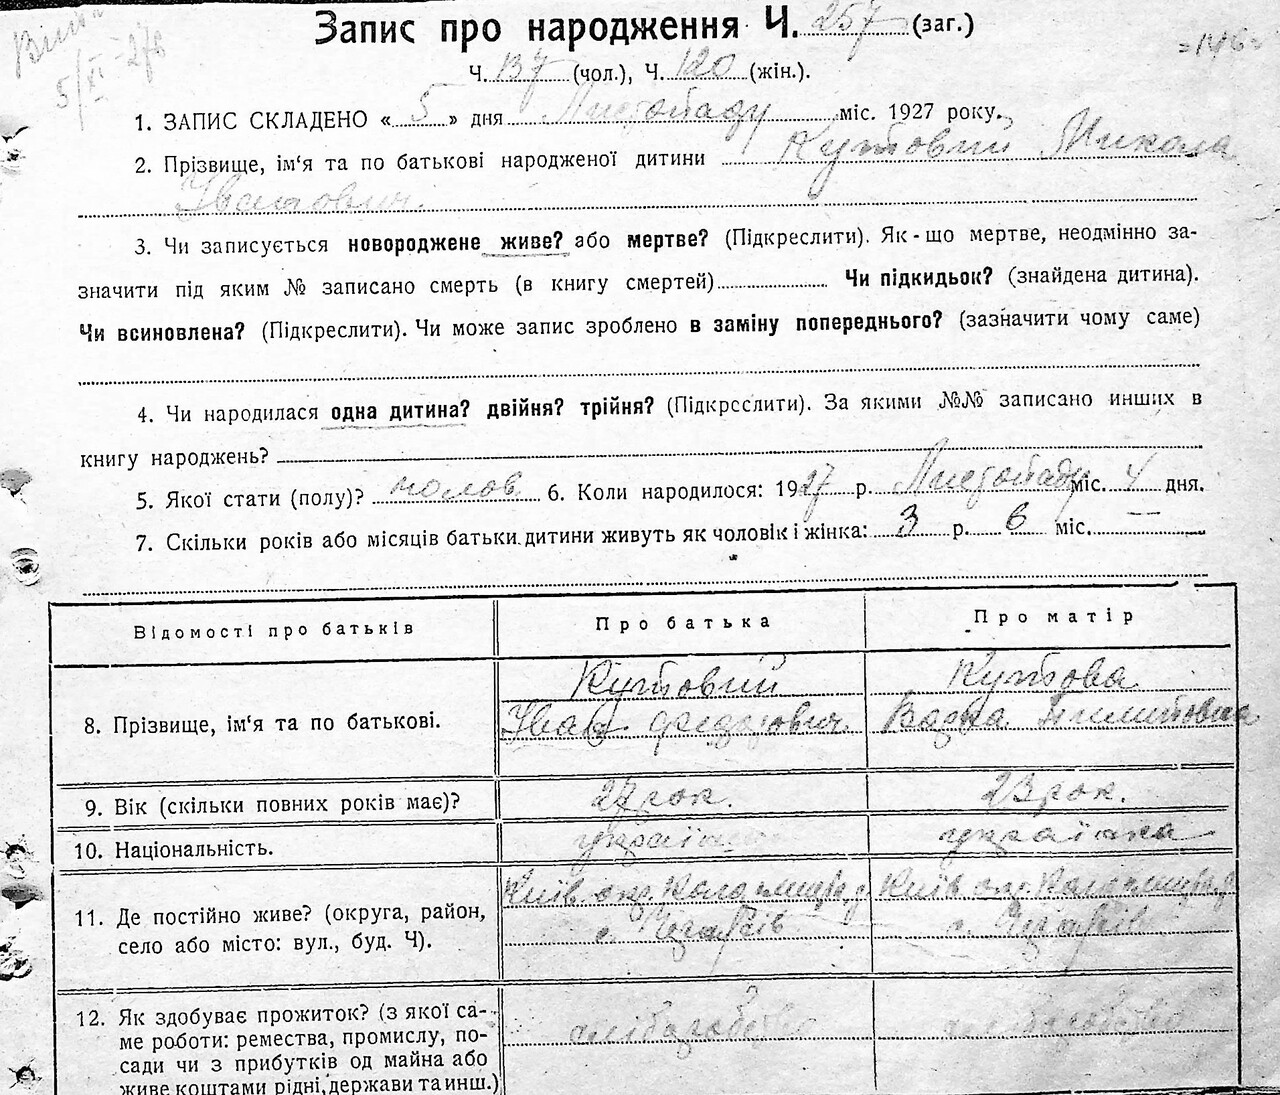 Запис про народження Ч. 257 (заг.)
Ч. 137 (чол.), Ч. 120 (жін.).
1. ЗАПИС СКЛАДЕНО « 5 » дня Листопаду міс. 1927 року.
2. Прізвище, ім'я та по батькові народженої дитини Кутовий Микола
Іванович.
3. Чи записується новороджене живе? або мертве? (Підкреслити). Як-що мертве, неодмінно за-
значити під яким № записано смерть (в книгу смертей) Чи підкидьок? (знайдена дитина).
Чи всиновлена? (Підкреслити). Чи може запис зроблено в заміну попереднього? (зазначити чому саме)
4. Чи народилася одна дитина? двійня? трійня? (Підкреслити). За якими №№ записано инших в
книгу народжень?
5. Якої стати (полу)? чолов. 6. Коли народилося: 1927 р. Листопаду міс. 4 дня.
7. Скільки років або місяців батьки дитини живуть як чоловік і жінка: 3 р. 6 міс.
Відомості про батьків Про батька Про матір
8. Прізвище, ім'я та по батькові. Кутовий Кутова
Іван Федорович.
9. Вік (скільки повних років має)? 27 рок. 23 рок.
10. Національність. українка
11. Де постійно живе? (округа, район,
село або місто: вул., буд. Ч).
Київ. окр. Київ. окр.
с. с.
12. Як здобуває прожиток? (з якої са-
ме роботи: ремества, промислу, по-
сади чи з прибутків од майна або
живе коштами рідні, держави та инш.)
хліборобство хліборобство